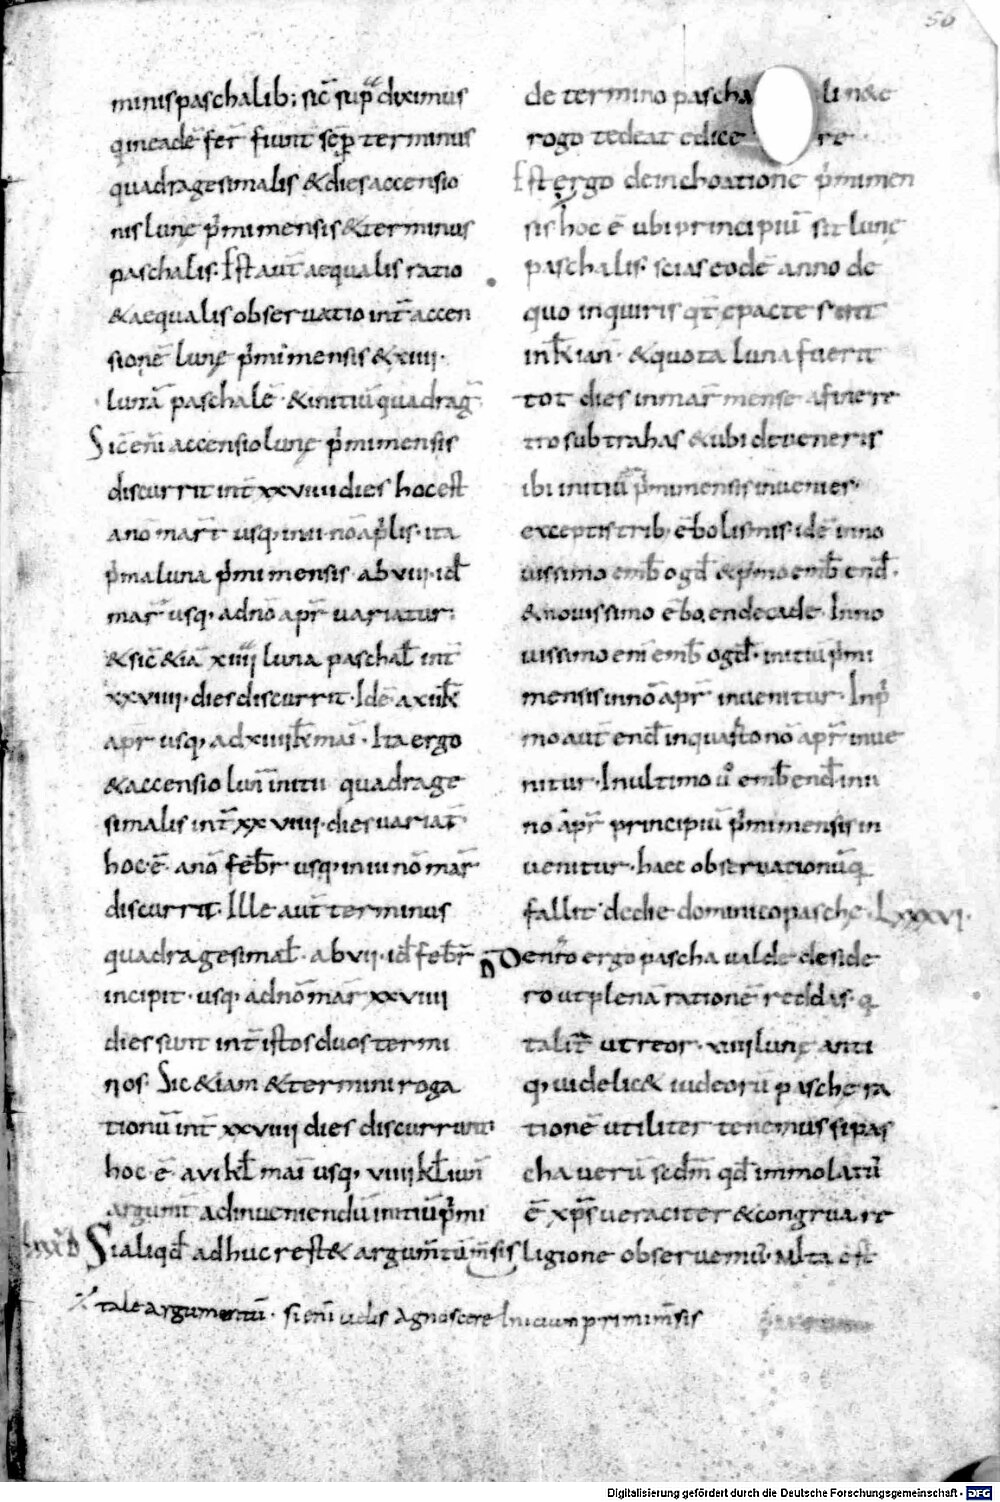 56
minis paschalib; sic̄ sup̄ diximus
q̇ in eadē fer̄ fiunt sēp terminus
quadragesimalis & dies accensio
nis lunę p̄mi mensis & terminus
paschalis. Est aut̄ aequalis ratio
& aequalis observatio int̄ accen
sionē lunę p̄mi mensis & xiiii.
lunā paschalē & initiū quadraḡ
Sic eni̅ accensio lunę p̄mi mensis
discurrit int̄ xxviiii dies hoc est
anō mar̄t usq, in iii nō ap̄lis. ita
p̄ma luna p̄mi mensis ab viii id̄
mar̄ usq, ad nō apr̄ variatur.
& sic̄ &iā xiiii luna paschal̄ int̄
xxviiii dies discurrit. Idē a xii kl̄
apr̄ usq, ad xiiii kl̄ mai̅. Ita ergo
& accensio lun̄ initii quadrage
simalis int̄ xxviiii dies variat̄
hoc ē anō febr̄ usq, in iii nō mar̄
discurrit. Ille aut̄ terminus
quadragesimal̄ ab vii id̄ febr̄
incipit usq, ad nō mar̄ xxviiii
dies sunt int̄ istos duos termi
nos. Sic &iam & termini roga
tionū int̄ xxviiii dies discurrunt
hoc ē a vi kl̄ mai̅ usq, viiii kl̄ iun̄
argum̄t ad inueniendū initiū p̄mi
Si aliqd̄ adhuc rest& argum̄tū m̄sis
de termino pascha li n&c
rogo tedeat edice re
Est ergo de inchoatione p̄mi men
sis hoc ē ubi principiū sit lunę
paschalis. scias eodē anno de
quo inquiris qt̄ epacte sunt
in kl̄ ian̄. & quota luna fuerit
tot dies in mar̄ mense a fine re
tro subtrahas & ubi deveneris
ibi initiū p̄mi mensis invenies.
exceptis trib, ēbolismis. idē in no
vissimo emb̄ ogd̄ & p̄mo emb̄ end̄.
& novissimo ēbo, endecade. In no
vissimo eni̅ emb̄ ogd̄. initiū p̄mi
mensis in nō apr̄ invenitur. In p̄
mo aut̄ end̄ in quarto nō apr̄ inve
nitur. In ultimo v̊ emb̄ end̄. in ii
no apr̄ principiū p̄mi mensis in
venitur. haec observatio nūq̄
fallit de die dominico paschę. Lxxxvi.
De n̄ro ergo pascha valde deside
ro ut plenā rationē reddas. q̄
talit̄ ut reor. xiiii lunę anti
q, videlic& iudeorū paschę ra
tionē utiliter tenemus si pas
cha verū scd̄m qd̄ immolatū
ē xp̄s veraciter & congrua re
ligione observemus. Multa est
tale argumentū. si eni̅ velis agnoscere Inicium primi m̄sis
Digitalisierung gefördert durch die Deutsche Forschungsgemeinschaft - DFG